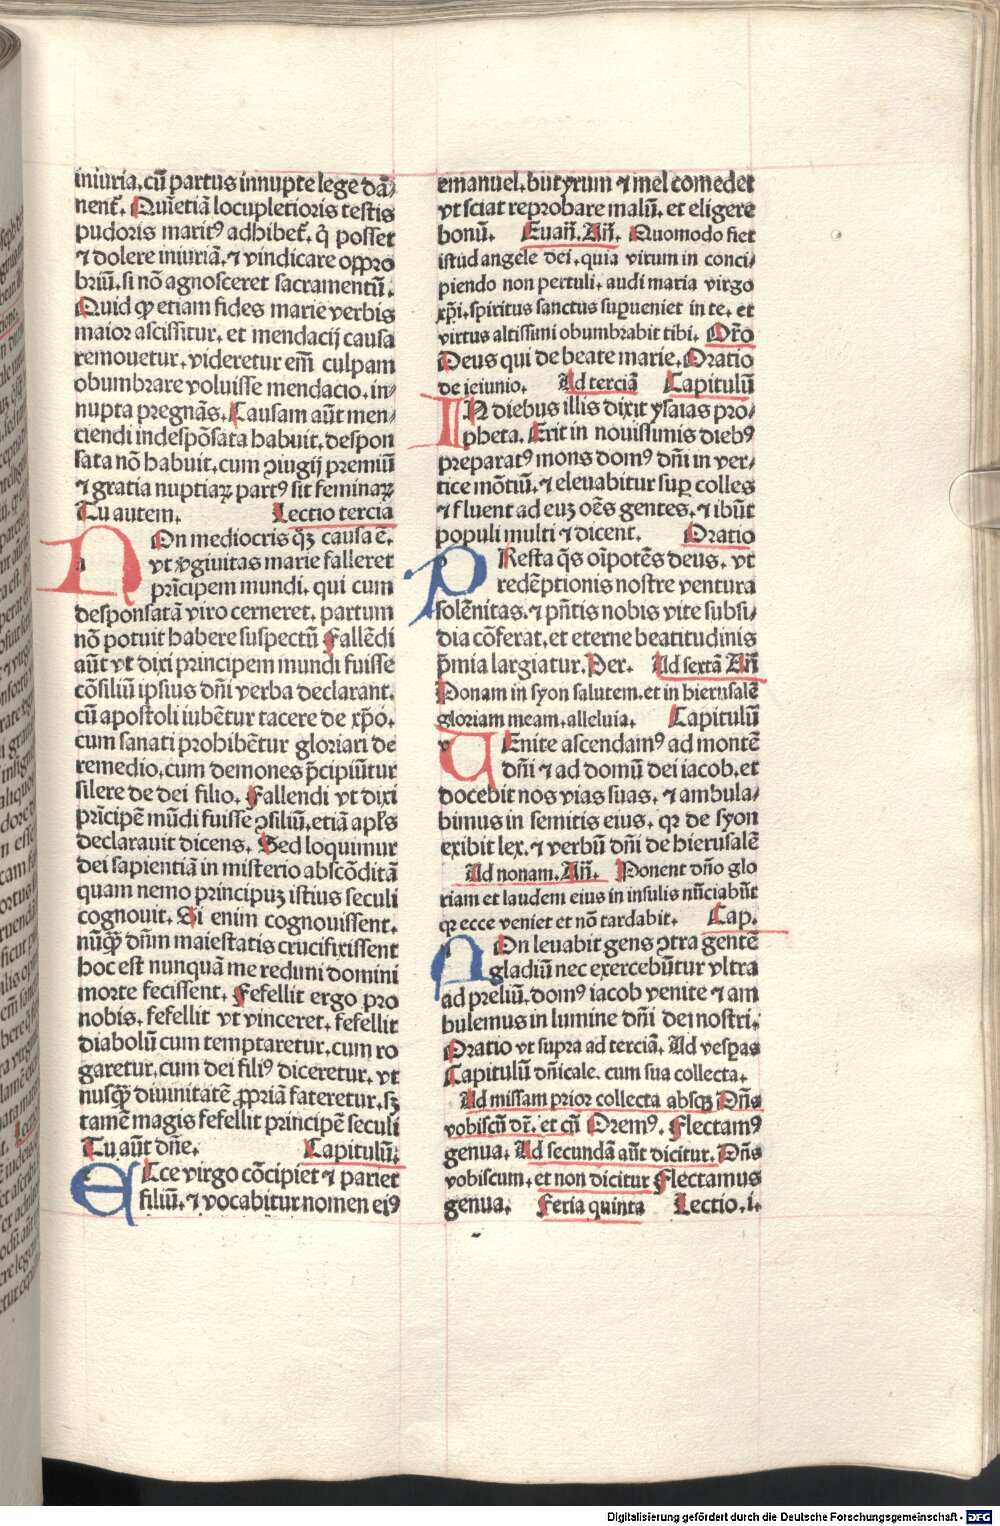 iniuria. cū partus innupte lege dā⸗
nent̄. Quī etiā locupletioris testis
pudoris maritꝰ adhibet̄. q̇ posset
⁊ dolere iniuriā. ⁊ vindicare oppro
briū. si nō agnosceret sacramentū.
Quid ꝙ etiam fides marie verbis
maior ascissitur. et mendacij causa
remouetur. videretur em̄ culpam
obumbrare voluisse mendacio. in⸗
nupta pregnās. Causam aūt men⸗
ciendi indespōsata habuit. despon
sata nō habuit. cum ꝯiugij premiū
⁊ gratia nuptiaꝝ partꝰ sit feminaꝝ
Tu autem. Lectio tercia
n On mediocris qꝫ causa ē.
vt v̓giuitas marie falleret
prīcipem mundi. qui cum
desponsatā viro cerneret. partum
nō potuit habere suspectū Fallēdi
aūt vt dixi principem mundi fuisse
cōsiliū ipsius dn̄i verba declarant.
cū apostoli iubētur tacere de xp̄o.
cum sanati prohibētur gloriari de
remedio. cum demones p̄cipiūtur
silere de dei filio. Fallendi vt dixi
prīcipē mūdi fuisse ꝯsiliū. etiā apl̓s
declarauit dicens. Sed loquimur
dei sapientiā in misterio abscōditā
quam nemo principuꝫ istius seculi
cognouit. Si enim cognouissent.
nūꝙ̄ dn̄m maiestatis crucifixissent
hoc est nunquā me redimi domini
morte fecissent. Fefellit ergo pro
nobis. fefellit vt vinceret. fefellit
diabolū cum temptaretur. cum ro
garetur. cum dei filiꝰ diceretur. vt
nusꝙ̄ diuinitatē ꝓpriā fateretur. sꝫ
tamē magis fefellit principē seculi
Tu aūt dn̄e. Capitulū.
E Cce virgo cōcipiet ⁊ pariet
filiū. ⁊ vocabitur nomen eiꝰ
emanuel. butyrum ⁊ mel comedet
vt sciat reprobare malū. et eligere
bonū. Euan̄. An̄. Quomodo fiet
istud angele dei. quia virum in conci⸗
piendo non pertuli. audi maria virgo
xp̄i. spiritus sanctus suꝑueniet in te. et
virtus altissimi obumbrabit tibi. Or̄o
Deus qui de beate marie. Oratio
de ieiunio. Ad terciā Capitulū
IN diebus illis dixit ysaias pro⸗
pheta. Erit in nouissimis diebꝰ
preparatꝰ mons domꝰ dn̄i in ver⸗
tice mōtiū. ⁊ eleuabitur suꝑ colles
⁊ fluent ad euꝫ oēs gentes. ⁊ ibūt
populi multi ⁊ dicent. Oratio
p REsta q̄s oīpotēs deus. vt
redēptionis nostre ventura
solēnitas. ⁊ pn̄tis nobis vite subsi⸗
dia cōferat. et eterne beatitudinis
p̄mia largiatur. Per. Ad sextā An̄
Ponam in syon salutem. et in hierusalē
gloriam meam. alleluia. Capitulū
v Enite ascendamꝰ ad montē
dn̄i ⁊ ad domū dei iacob. et
docebit nos vias suas. ⁊ ambula⸗
bimus in semitis eius. qꝛ de syon
exibit lex. ⁊ verbū dn̄i de hierusalē
Ad nonam. An̄. Ponent dn̄o glo
riam et laudem eius in insulis nūciabūt
qꝛ ecce veniet et nō tardabit. Cap.
n On leuabit gens ꝯtra gentē
gladiū nec exercebūtur vltra
ad preliū. domꝰ iacob venite ⁊ am
bulemus in lumine dn̄i dei nostri.
Oratio vt supra ad terciā. Ad vesꝑas
Capitulū dn̄icale. cum sua collecta.
Ad missam prior collecta absqꝫ Dn̄s
vobiscū dr̄. et cū Oremꝰ. Flectamꝰ
genua. Ad secundā aūt dicitur. Dn̄s
vobiscum. et non dicitur Flectamus
genua. Feria quinta Lectio. i.
Digitalisierung gefördert durch die Deutsche Forschungsgemeinschaft - DFG